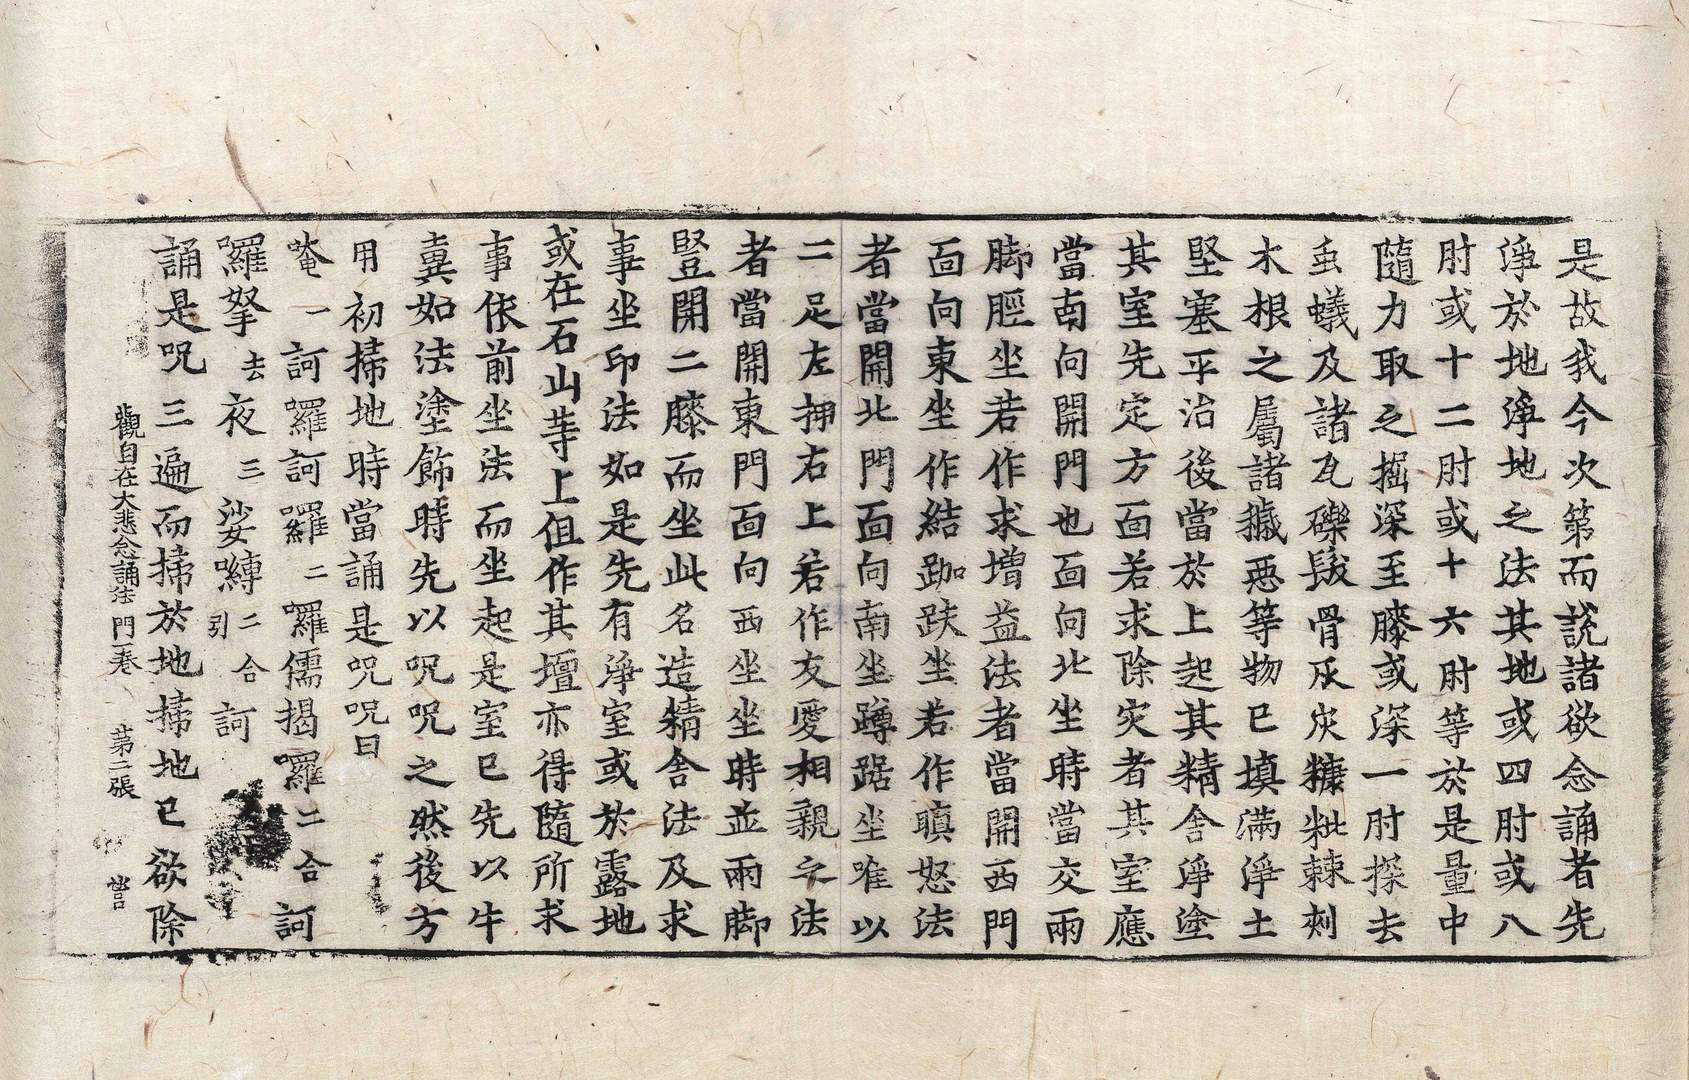 是故我今次第而說諸欲念誦者先
淨於地淨地之法其地或四肘或八
肘或十二肘或十六肘等於是量中
隨力取之掘深至膝或深一肘探去
虫蟻及諸瓦礫髮骨灰炭糠粃棘刺
木根之屬諸穢惡等物已填滿淨土
堅塞平治後當於上起其精舍淨塗
其室先定方面若求除灾者其室應
當南向開門也面向北坐時當交兩
脚脛坐若作求增益法者當開西門
面向東坐作結跏趺坐若作瞋怒法
者當開北門面向南坐蹲踞坐唯以
二足左押右上若作友愛相親之法
者當開東門面向西坐坐時並兩脚
豎開二膝而坐此名造精舍法及求
事坐印法如是先有淨室或於露地
或在石山等上但作其壇亦得隨所求
事依前坐法而坐起是室已先以牛
糞如法塗飾時先以呪呪之然後方
用初掃地時當誦是呪呪曰
唵一訶囉訶囉二囉儒揭囉二合訶
囉拏去夜三娑嚩二合引訶
誦是呪三遍而掃於地掃地已欲除
觀自在大悲念誦法門卷 第二張